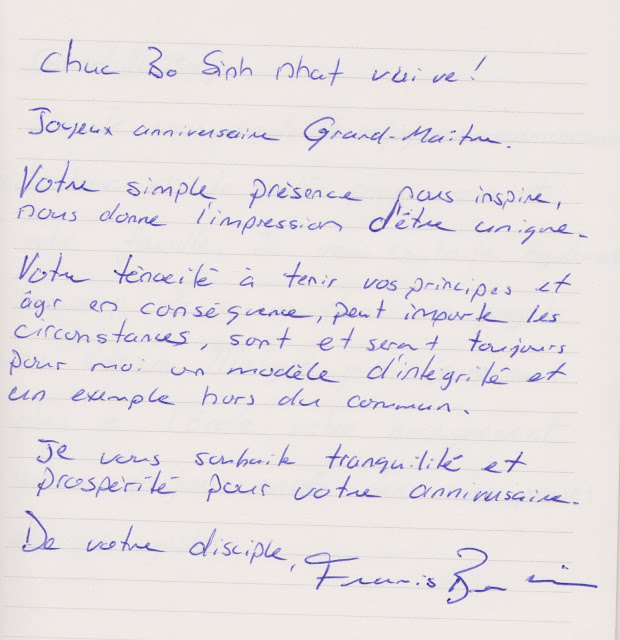 Chuc Bo Sinh nhat vui ve!
Joyeux anniversaire Grand-Maître.
Votre simple présence nous inspire,
nous donne l'impression d'être unique.
Votre ténacité à tenir vos principes et
âgir en conséquence, peut importe les
circonstances, sont et seront toujours
pour moi un modèle d'intégrité et
un exemple hors du commun.
Je vous souhaite tranquilité et
prospérité pour votre anniversaire.
De votre disciple, Francis